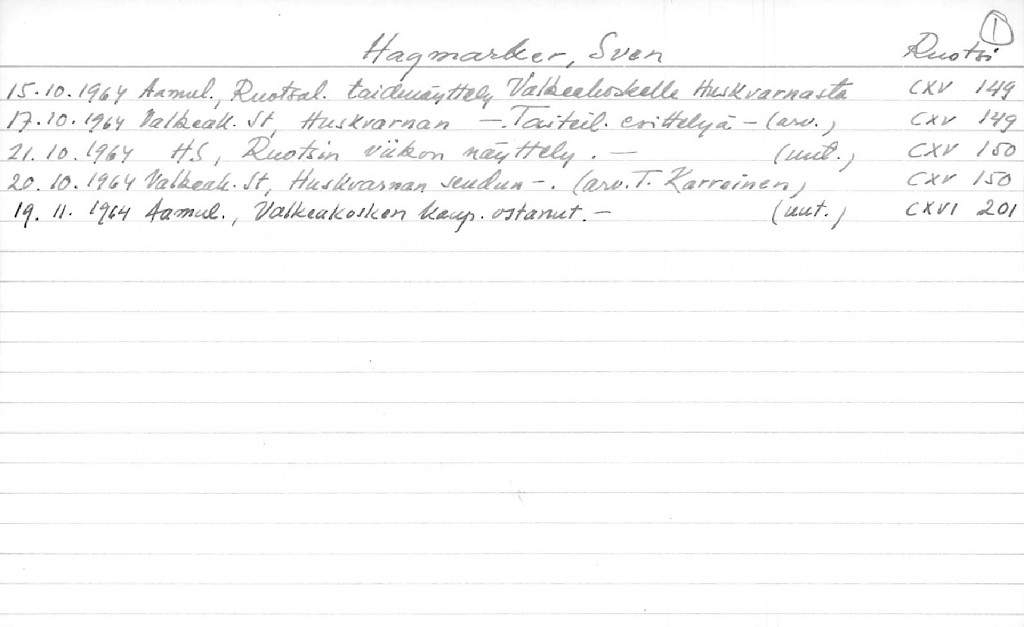 1
Hagmarker, Sven Ruotsi
15.10.1964 Aamul., Ruotsal. taidenäyttely Valkeakoskelle Huskvarnasta CXV 149
17.10.1964 Valkeak. St, Huskvarnan —. Taiteil. erittelyä — (arv.) CXV 149
21.10.1964 HS, Ruotsin viikon näyttely. — (uut.) CXV 150
20.10.1964 Valkeak. St, Huskvarnan seudun —. (arv. T. Karreinen) CXV 150
19.11.1964 Aamul., Valkeakosken kaup. ostanut. — (uut.) CXVI 201